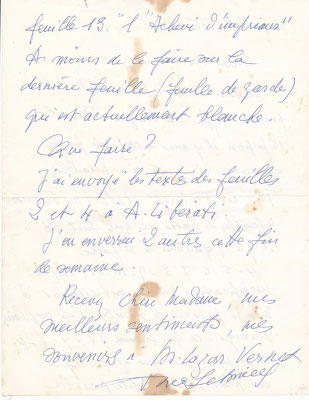 feuille 13. "l'"Achevé d'imprimer"
A moins de le faire sur la
dernière feuille (feuille de garde)
qui est actuellement blanche.
Que faire ?
J'ai envoyé les textes des feuilles
2 et 4 à A. Liberati.
J'en enverrai 2 autres cette fin
de semaine.
Recevez Chère Madame, mes
meilleurs sentiments, mes
souvenirs à Vernet